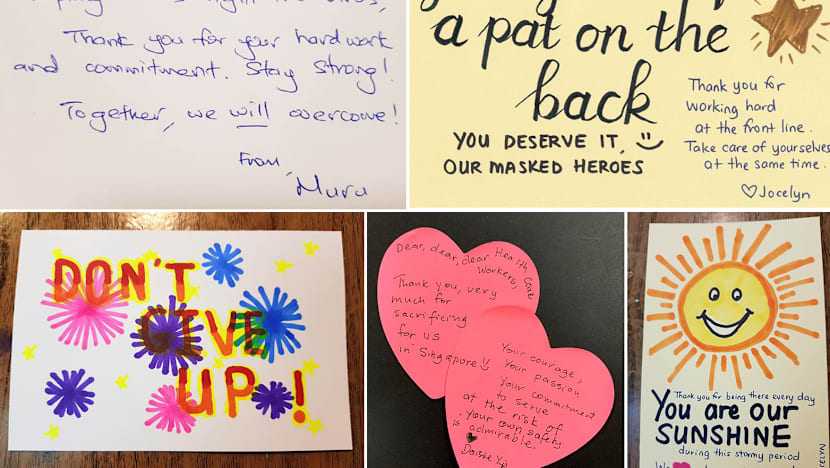 Thank you for your hard work
and commitment. Stay Strong!
Together, we will overcome!
From,
Muru
a pat on the
back
YOU DESERVE IT,
OUR MASKED HEROES
Thank you for
working hard
at the front line.
Take care of yourselves
at the same time.
Jocelyn
DON'T
GIVE
UP!
Dear, dear, dear Health
Care
Workers,
Thank you, very
much for
sacrificing
for us
in Singapore
Your courage,
Your passion
Your commitment
to serve
at the risk of
your own safety
is admirable.
Thank you for being there every day
You are our
SUNSHINE
during this stormy period
We